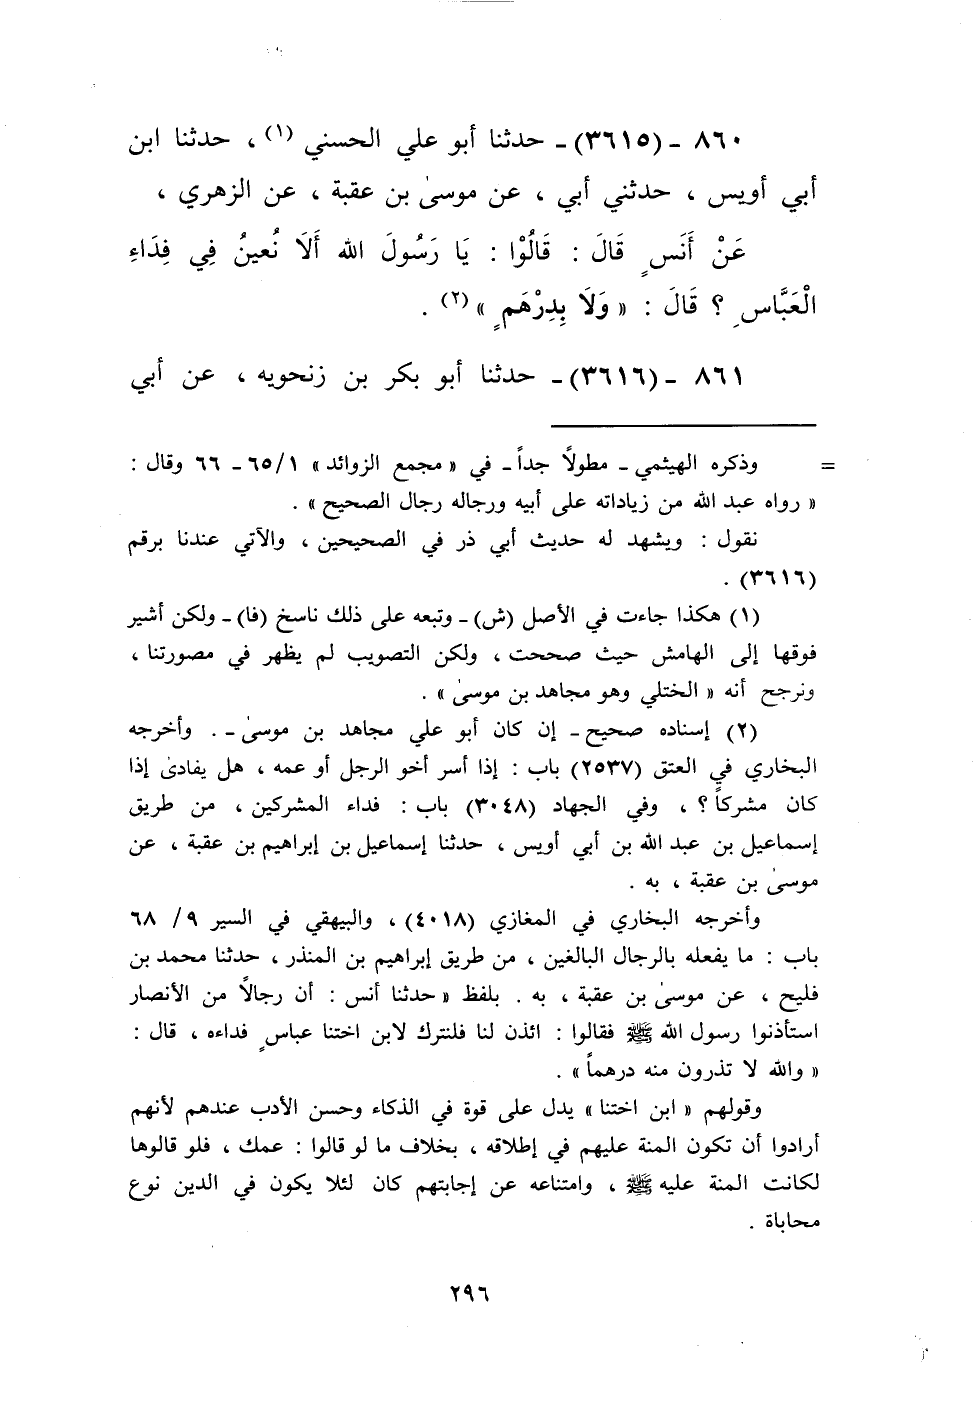 ٨٦٠ - (٣٦١٥) - حدثنا أبو علي الحسني (١) ، حدثنا ابن
أبي أويس ، حدثني أبي ، عن موسىٰ بن عقبة ، عن الزهري ،
عَنْ أَنَسٍ قَالَ : قَالُوْا : يَا رَسُولَ الله أَلَا نُعينُ فِي فِدَاءِ
الْعَبَّاسِ ؟ قَالَ : « وَلَا بِدِرْهَمٍ » (٢) .
٨٦١ - (٣٦١٦) - حدثنا أبو بكر بن زنحويه ، عن أبي
= وذكره الهيثمي - مطولاً جداً - في « مجمع الزوائد » ٦٥/١ - ٦٦ وقال :
« رواه عبد الله من زياداته على أبيه ورجاله رجال الصحيح » .
نقول : ويشهد له حديث أبي ذر في الصحيحين ، والآتي عندنا برقم
(٣٦١٦) .
(١) هكذا جاءت في الأصل (ش) - وتبعه على ذلك ناسخ (فا) - ولكن أشير
فوقها إلى الهامش حيث صححت ، ولكن التصويب لم يظهر في مصورتنا ،
ونرجح أنه « الختلي وهو مجاهد بن موسىٰ » .
(٢) إسناده صحيح - إن كان أبو علي مجاهد بن موسىٰ - . وأخرجه
البخاري في العتق (٢٥٣٧) باب : إذا أسر أخو الرجل أو عمه ، هل يفادىٰ إذا
كان مشركاً ؟ ، وفي الجهاد (٣٠٤٨) باب : فداء المشركين ، من طريق
إسماعيل بن عبد الله بن أبي أويس ، حدثنا إسماعيل بن إبراهيم بن عقبة ، عن
موسىٰ بن عقبة ، به .
وأخرجه البخاري في المغازي (٤٠١٨) ، والبيهقي في السير ٩/ ٦٨
باب : ما يفعله بالرجال البالغين ، من طريق إبراهيم بن المنذر ، حدثنا محمد بن
فليح ، عن موسىٰ بن عقبة ، به . بلفظ « حدثنا أنس : أن رجالاً من الأنصار
استأذنوا رسول الله ﷺ فقالوا : ائذن لنا فلنترك لابن اختنا عباسٍ فداءه ، قال :
« والله لا تذرون منه درهماً » .
وقولهم « ابن اختنا » يدل على قوة في الذكاء وحسن الأدب عندهم لأنهم
أرادوا أن تكون المنة عليهم في إطلاقه ، بخلاف ما لو قالوا : عمك ، فلو قالوها
لكانت المنة عليه ﷺ ، وامتناعه عن إجابتهم كان لئلا يكون في الدين نوع
محاباة .
٢٩٦